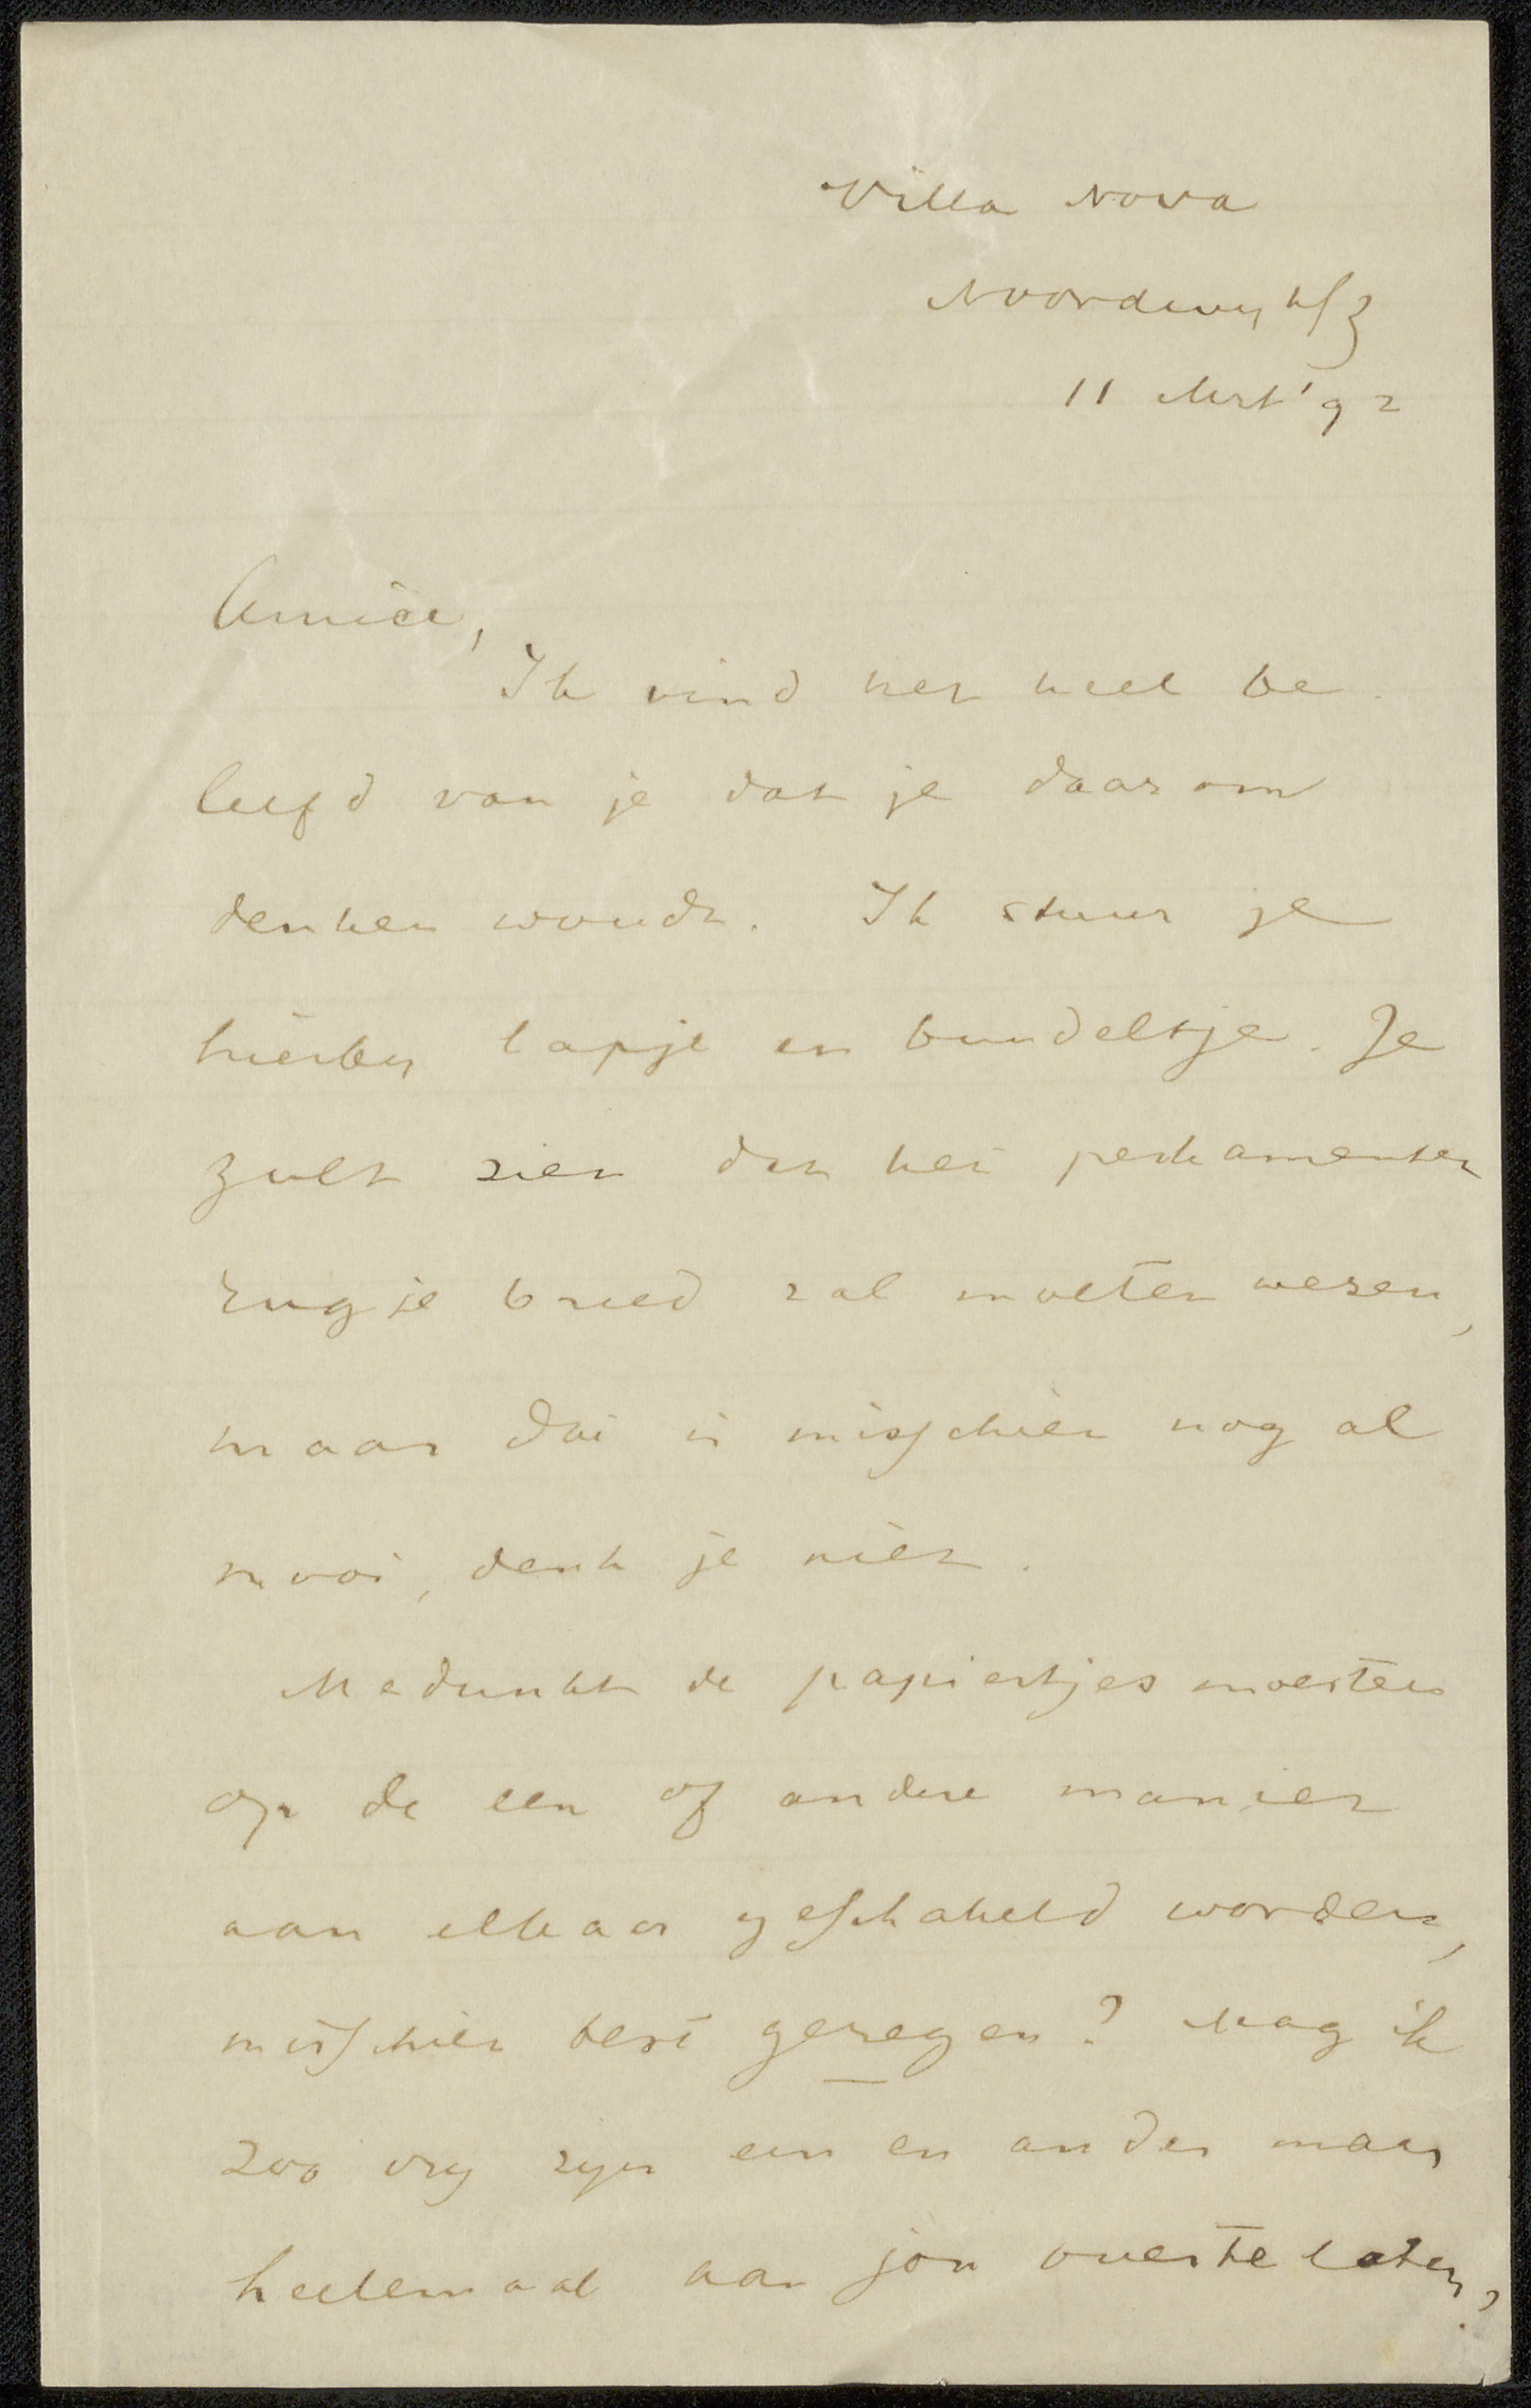 Villa Nova
Noordwyk a/z
11 Mrt '92
Amice,
Ik vind het heel be-
leefd van je dat je daarom
denken woudt. Ik stuur je
hierby lapje en bundeltje. Je
zult zien dat het perkamenten
rugje breed zal moeten wezen,
maar dat is misschien nog al
mooi, denk je niet.
Me dunkt de papiertjes moesten
op de een of andere manier
aan elkaar geschakeld worden,
misschien best geregen? Mag ik
zoo vry zyn een en ander maar
heelemaal aan jou over te laten?